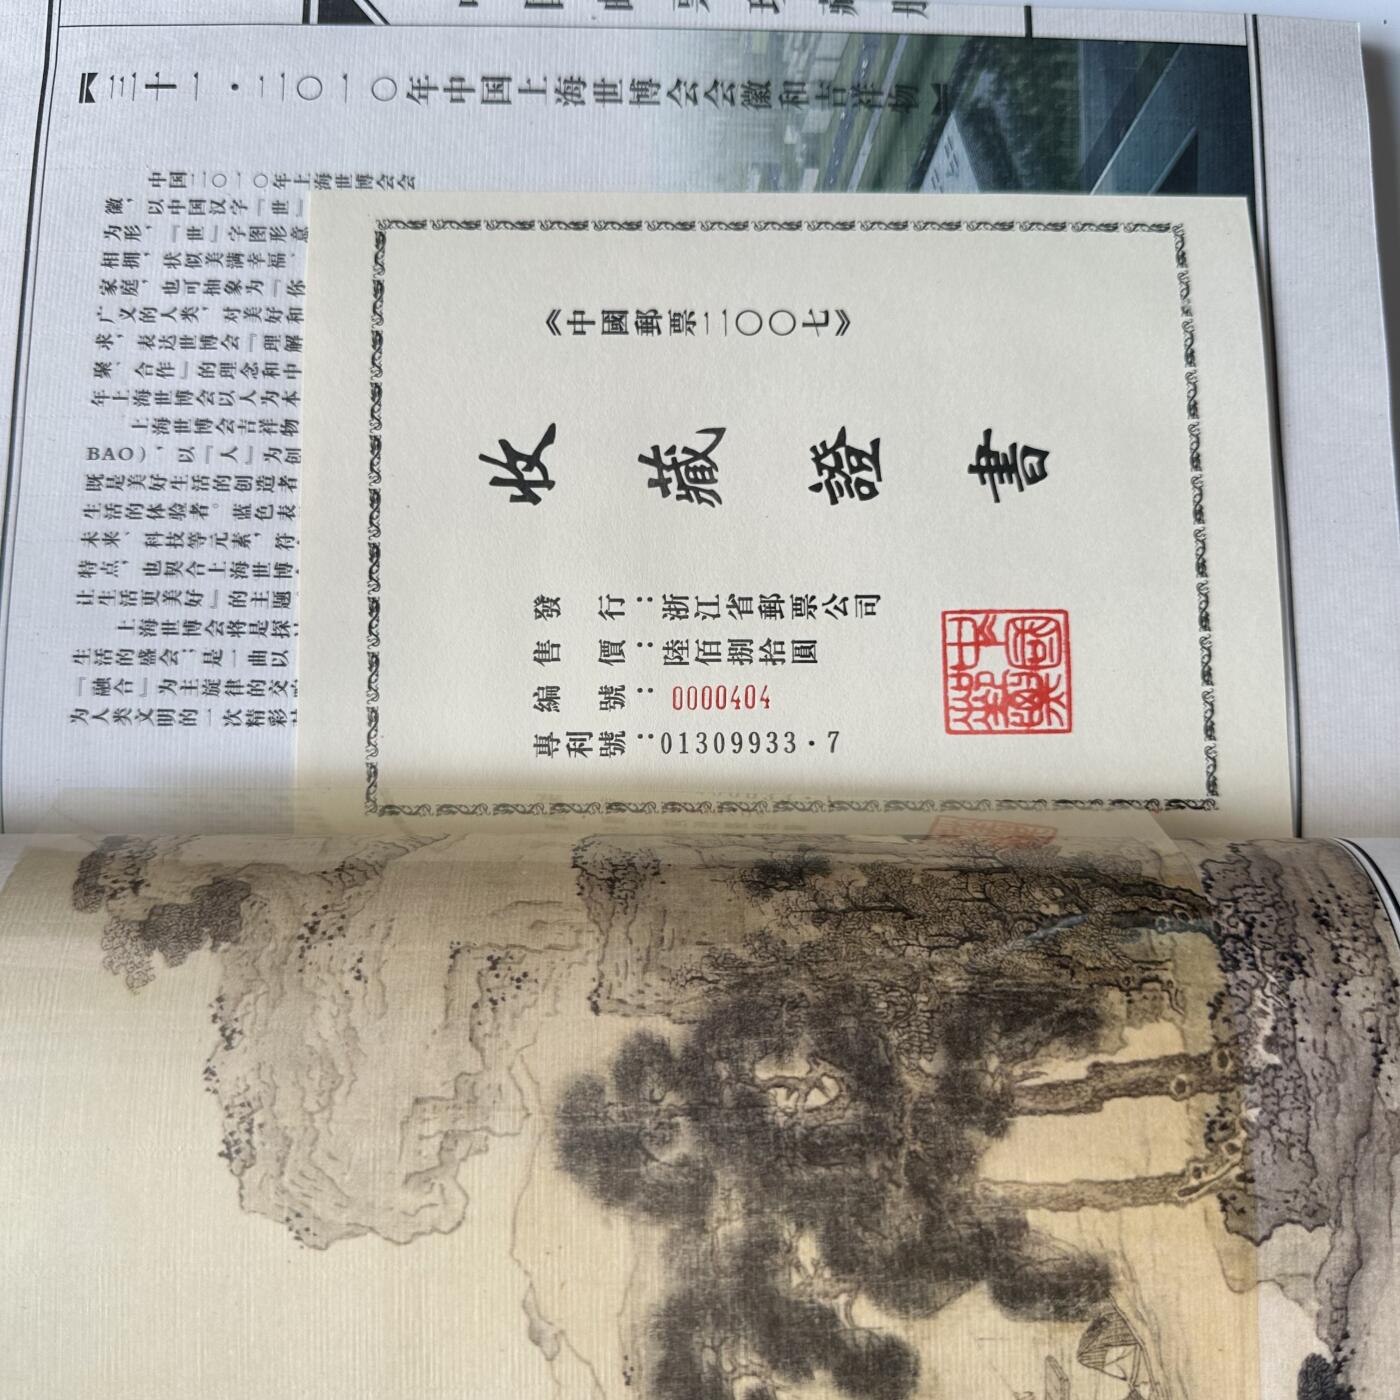 【三十一·二〇一〇年中国上海世博会会徽和吉祥物】
中国二〇一〇年上海世博会会
徽，以中国汉字『世』
为形，『世』字图形意
相拥，状似美满幸福、
家庭，也可抽象为『你
广义的人类，对美好和
求，表达世博会『理解
聚、合作』的理念和中
年上海世博会以人为本
上海世博会吉祥物
BAO），以『人』为创
既是美好生活的创造者
生活的体验者。蓝色表
未来、科技等元素，符
特点，也契合上海世博
让生活更美好』的主题
上海世博会将是探
生活的盛会；是一曲以
『融合』为主旋律的交
为人类文明的一次精彩
《中國郵票二〇〇七》
收藏證書
發行：浙江省郵票公司
售價：陸佰捌拾圓
編號：0000404
專利號：01309933·7